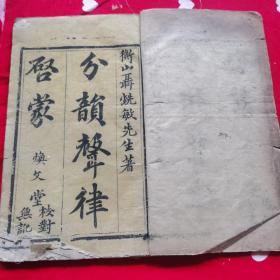 衡山聶銑敏先生著
分韻聲律
啓蒙
煥文堂
校對無訛